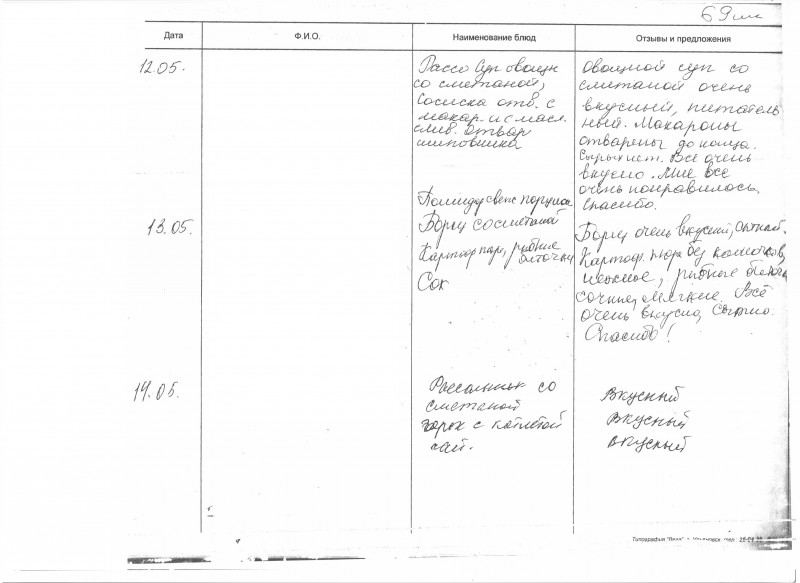 69 шк
Дата
Ф.И.О.
Наименование блюд
Отзывы и предложения
12.05.
Рассо Суп овощн
со сметаной,
Сосиска отв. с
макар. и с масл.
слив. отвар
шиповника
Овощной суп со
сметаной очень
вкусный, питатель
ный. Макароны
отварены до конца.
Сырых нет. Всё очень
вкусно. Мне все
очень понравилось,
Спасибо.
13.05.
Помидор свеж порцион
Борщ со сметаной
Картоф пюре, рыбные
биточки
Сок
Борщ очень вкусный,
Картоф. пюре без комочков,
нежное, рыбные биточки
сочные, мягкие. Всё
очень вкусно, сытно.
Спасибо!
14.05.
Рассольник со
сметаной
горох с котлетой
чай.
Вкусный
Вкусный
Вкусный
Типография